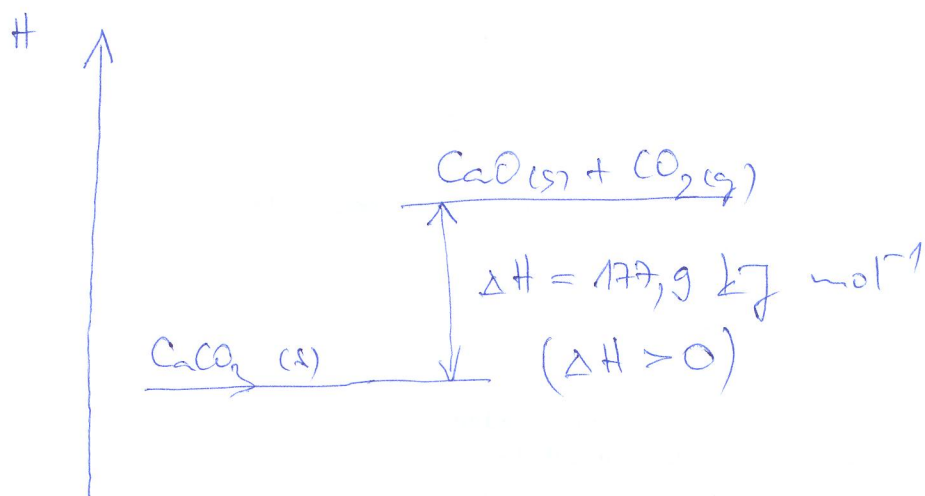 H
CaO(s) + CO₂(g)
ΔH = 177,9 kJ mol⁻¹
CaCO₃ (s)
(ΔH > 0)